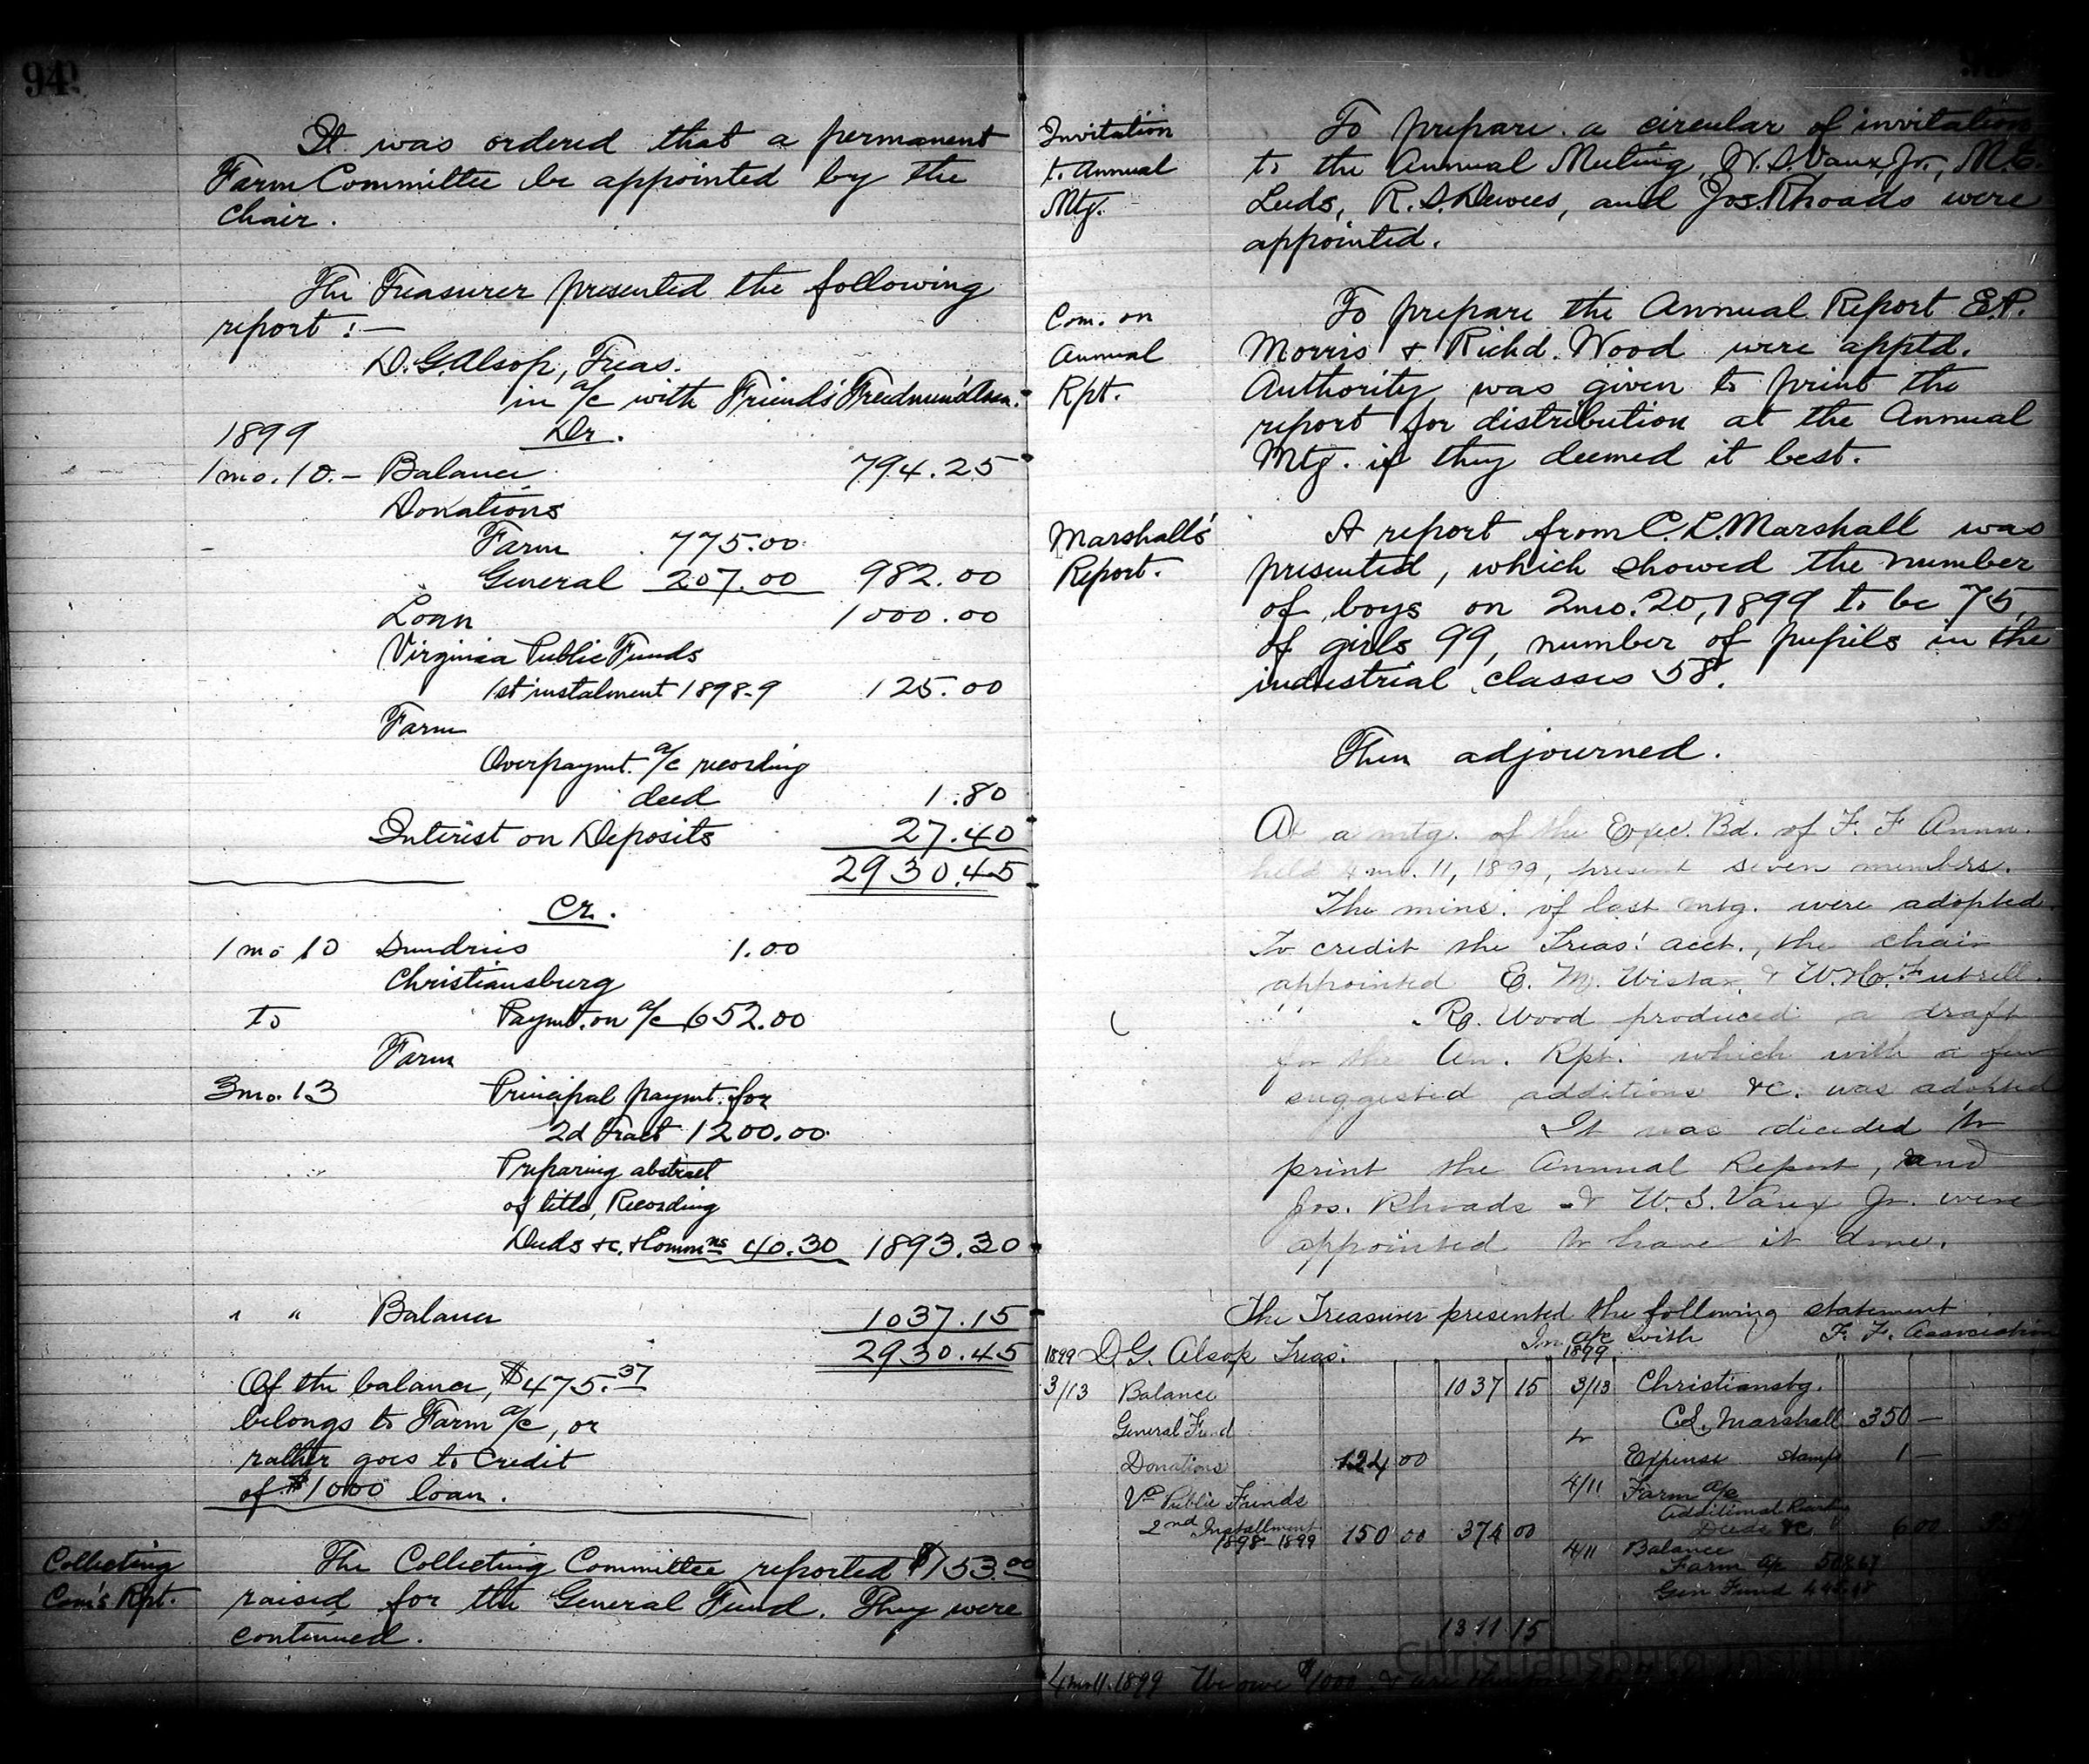 94
It was ordered that a permanent
Farm Committee be appointed by the
chair.
The Treasurer presented the following
report :—
D. G. Alsop, Treas.
in a/c with Friends' Freedmen's Assn.
1899 Dr.
1 mo. 10. – Balance 794.25
Donations
Farm 775.00
General 207.00 982.00
Loan 1000.00
Virginia Public Funds
1st instalment 1898-9 125.00
Farm
Overpaymt. a/c recording
deed 1.80
Interest on Deposits 27.40
2930.45
Cr.
1 mo 10 Sundries 1.00
Christiansburg
to Paymt. on a/c 652.00
Farm
3 mo. 13 Principal paymt. for
2d Tract 1200.00
Preparing abstract
of title, Recording
Deeds &c. & Commns 40.30 1893.30
" " Balance 1037.15
2930.45
Of the balance, $475.37
belongs to Farm a/c, or
rather goes to Credit
of $1000 loan.
Collecting
Com's Rpt.
The Collecting Committee reported $153.00
raised for the General Fund. They were
continued.
Invitation
to Annual
Mtg.
To prepare a circular of invitation
to the Annual Meeting, W. S. Vaux, Jr., M. E.
Leeds, R. S. Dewees, and Jos. Rhoads were
appointed.
Com. on
Annual
Rpt.
To prepare the Annual Report E. P.
Morris & Richd. Wood were apptd.
Authority was given to print the
report for distribution at the Annual
Mtg. if they deemed it best.
Marshall's
Report.
A report from C. L. Marshall was
presented, which showed the number
of boys on 2mo. 20, 1899 to be 75,
of girls 99, number of pupils in the
industrial classes 58.
Then adjourned.
At a mtg. of the Exec. Bd. of F. F. Assn.
held 4 mo. 11, 1899, present seven members.
The mins. of last mtg. were adopted.
To credit the Treas! acct., the chair
appointed E. M. Wistar & W. H. Futrell.
R. Wood produced a draft
for the An. Rpt. which with a few
suggested additions &c. was adopted
It was decided to
print the Annual Report, and
Jos. Rhoads & W. S. Vaux Jr. were
appointed to have it done.
The Treasurer presented the following statement
1899 D. G. Alsop Treas. In a/c with F. F. Association
1899
3/13 Balance 1037 15 3/13 Christiansbg.
General Fund C. L. Marshall 350 –
Donations 224 00 Expense stamps 1 –
Va Public Funds 4/11 Farm a/c
2nd Installment 150 00 374 00 Additional
1898–1899 Deeds &c 6 00
4/11 Balance
Farm a/c
Gen Fund
13 11 15
Christiansburg Institute
4 mo 11. 1899 We owe $1000 & are